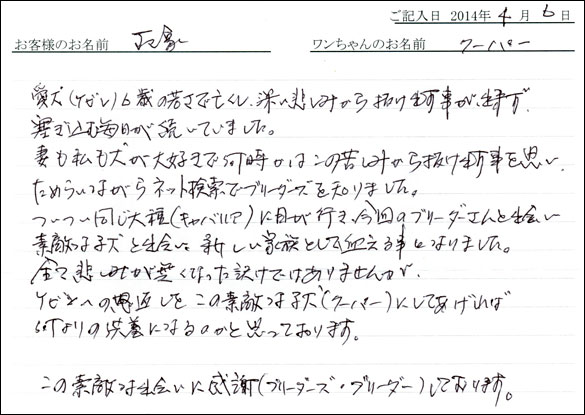 ご記入日 2014年 4月 6日
お客様のお名前 ワンちゃんのお名前 クーパー
愛犬(ケビン)6歳の若さで亡くし、深い悲しみから抜け出す事が出来ず、
塞ぎ込む毎日が続いていました。
妻も私も犬が大好きで何時かはこの苦しみから抜け出す事を思い、
ためらいながらネット検索でブリーダーズを知りました。
ついつい同じ犬種(キャバリア)に目が行き、今回のブリーダさんと出会い
素敵な子犬と出会い、新しい家族として迎える事になりました。
全て悲しみが無くなった訳けではありませんが、
ケビンへの恩返しを この素敵な子犬(クーパー)にしてあげれば
何よりの供養になるのかと思っております。
この素敵な出会いに感謝(ブリーダーズ・ブリーダー)しております。